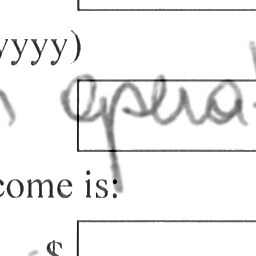 yyyy)
opera
come is:
$